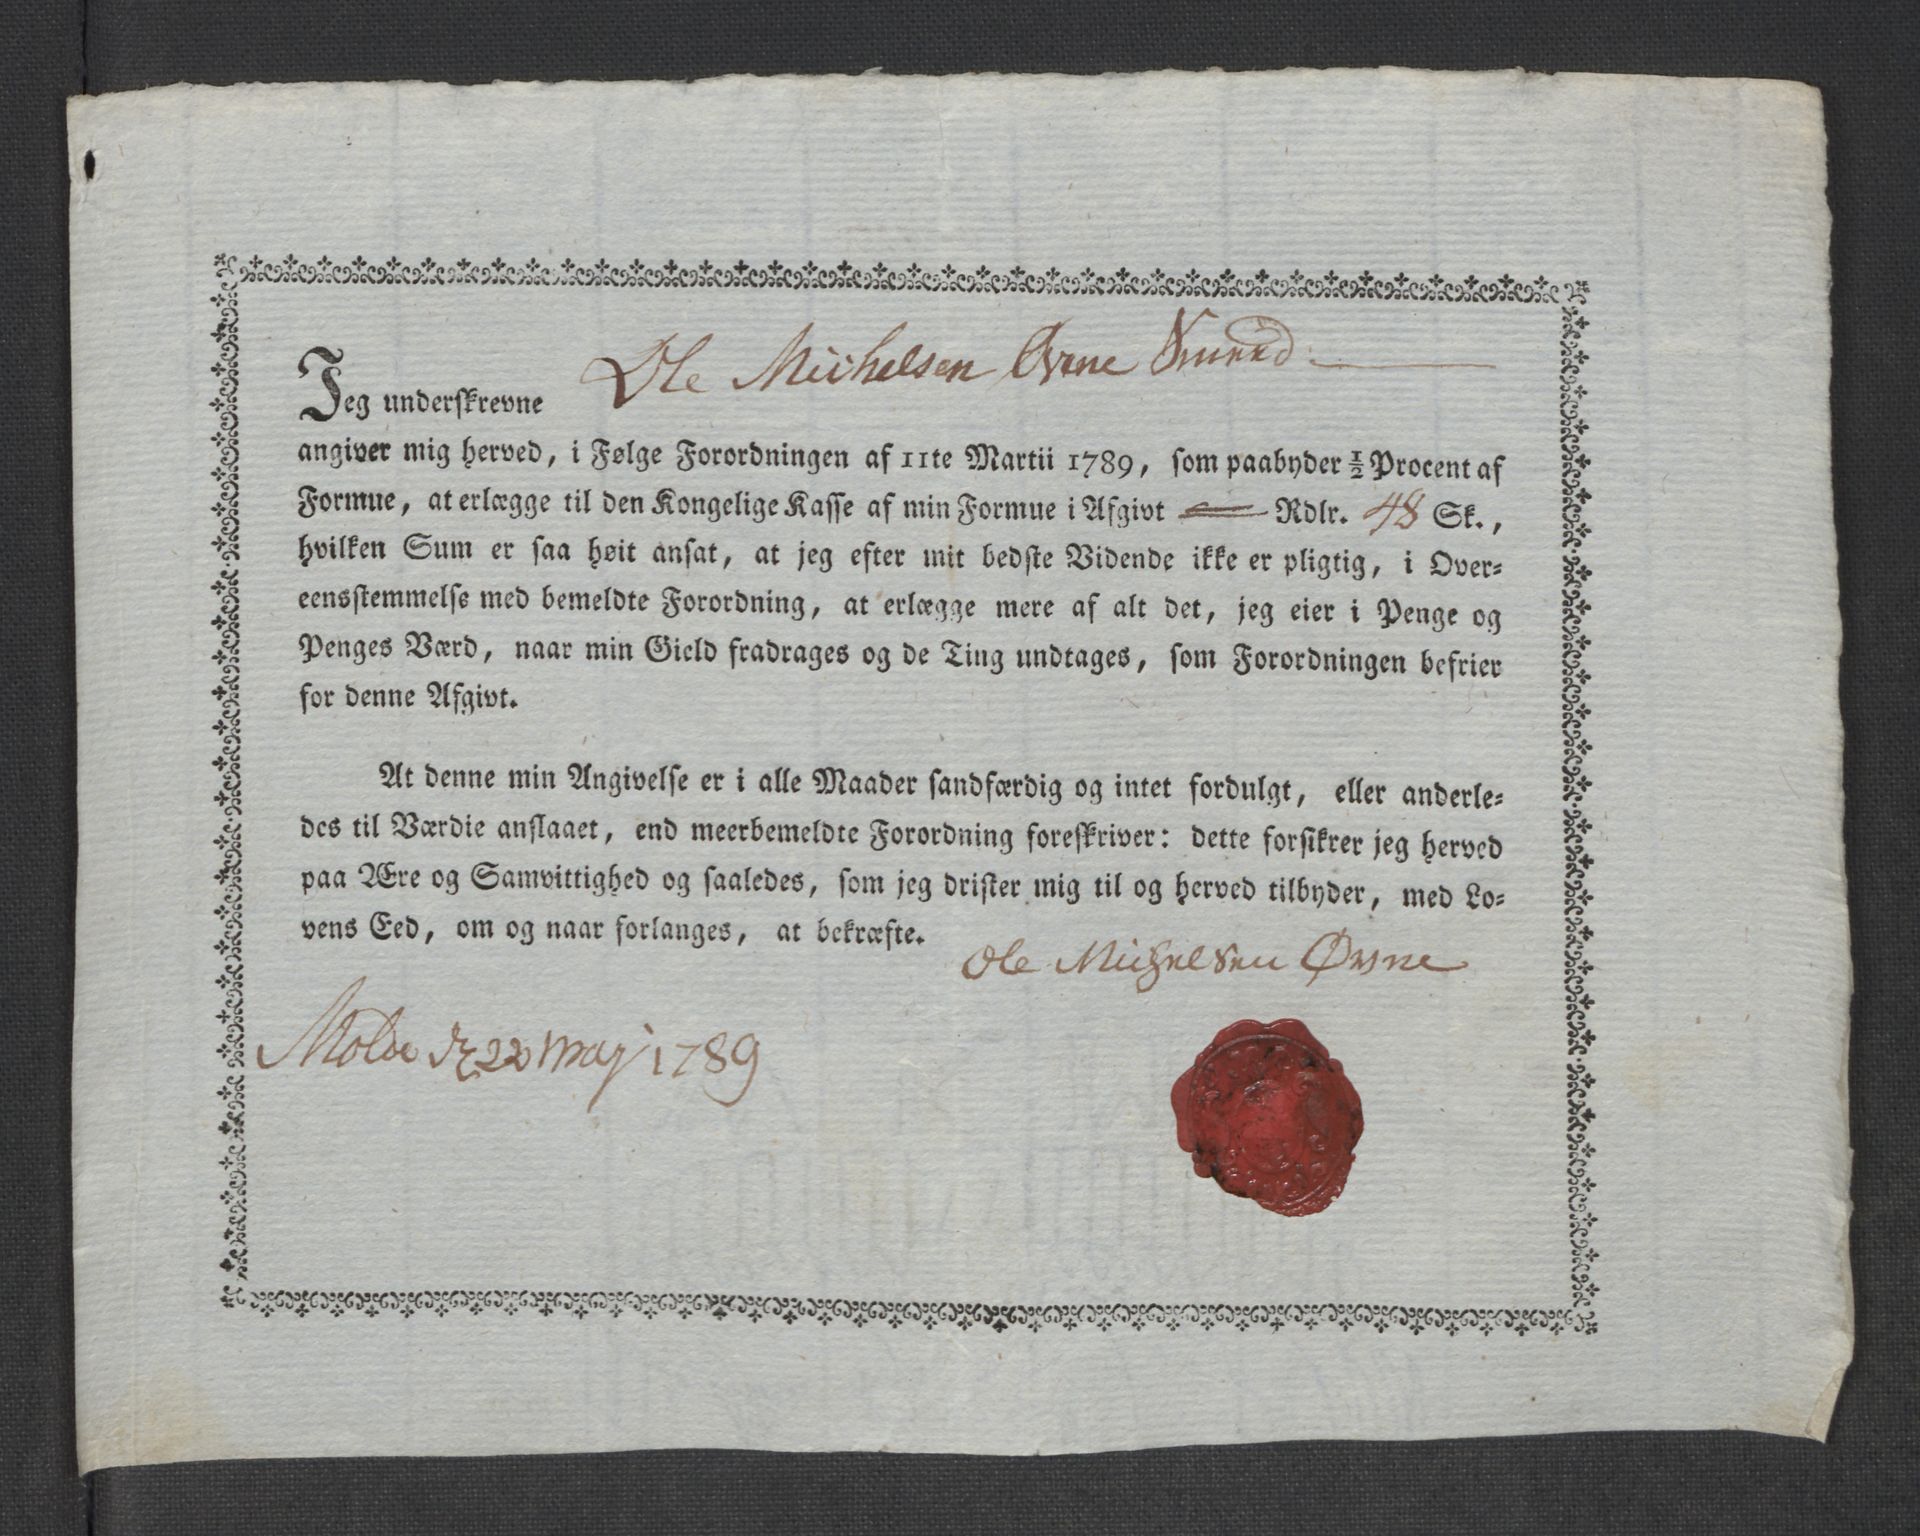 Jeg underskrevne Ole Michelsen Øvrne
angiver mig herved, i Følge Forordningen af 11te Martii 1789, som paabyder ½ Procent af
Formue, at erlægge til den Kongelige Kasse af min Formue i Afgivt — Rdlr. 48 Sk.,
hvilken Sum er saa høit ansat, at jeg efter mit bedste Vidende ikke er pligtig, i Over=
eensstemmelse med bemeldte Forordning, at erlægge mere af alt det, jeg eier i Penge og
Penges Værd, naar min Gield fradrages og de Ting undtages, som Forordningen befrier
for denne Afgivt.
At denne min Angivelse er i alle Maader sandfærdig og intet fordulgt, eller anderle=
des til Værdie anslaaet, end meerbemeldte Forordning foreskriver: dette forsikrer jeg herved
paa Ære og Samvittighed og saaledes, som jeg drister mig til og herved tilbyder, med Lo=
vens Eed, om og naar forlanges, at bekræfte.
Ole Michelsen Øvrne
Molde 22 Maj 1789